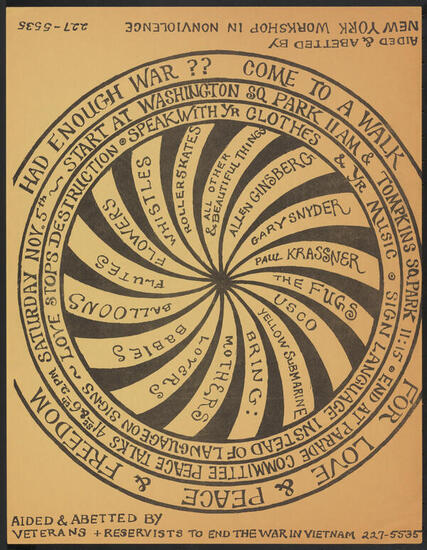 AIDED & ABETTED BY
NEW YORK WORKSHOP IN NONVIOLENCE 227-5535
HAD ENOUGH WAR ?? COME TO A WALK FOR LOVE & PEACE & FREEDOM
SATURDAY NOV. 5th ~ START AT WASHINGTON SQ. PARK 11 AM & TOMPKINS SQ. PARK 11:15 • END AT PARADE COMMITTEE PEACE TALKS
LOVE STOPS DESTRUCTION • SPEAK WITH YR CLOTHES & YR MUSIC • SIGN LANGUAGE INSTEAD OF LANGUAGE ON SIGNS ~
ALLEN GINSBERG
GARY SNYDER
PAUL KRASSNER
THE FUGS
USCO
YELLOW SUBMARINE
BRING:
MOTHERS
LOVERS
BABIES
BALLOONS
FLUTES
FLOWERS
WHISTLES
ROLLERSKATES
ALL OTHER
& BEAUTIFUL THINGS
AIDED & ABETTED BY
VETERANS + RESERVISTS TO END THE WAR IN VIETNAM 227-5535